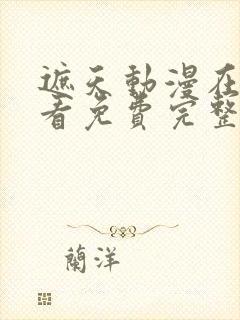 遮天動漫在
看免費完整
蘭洋